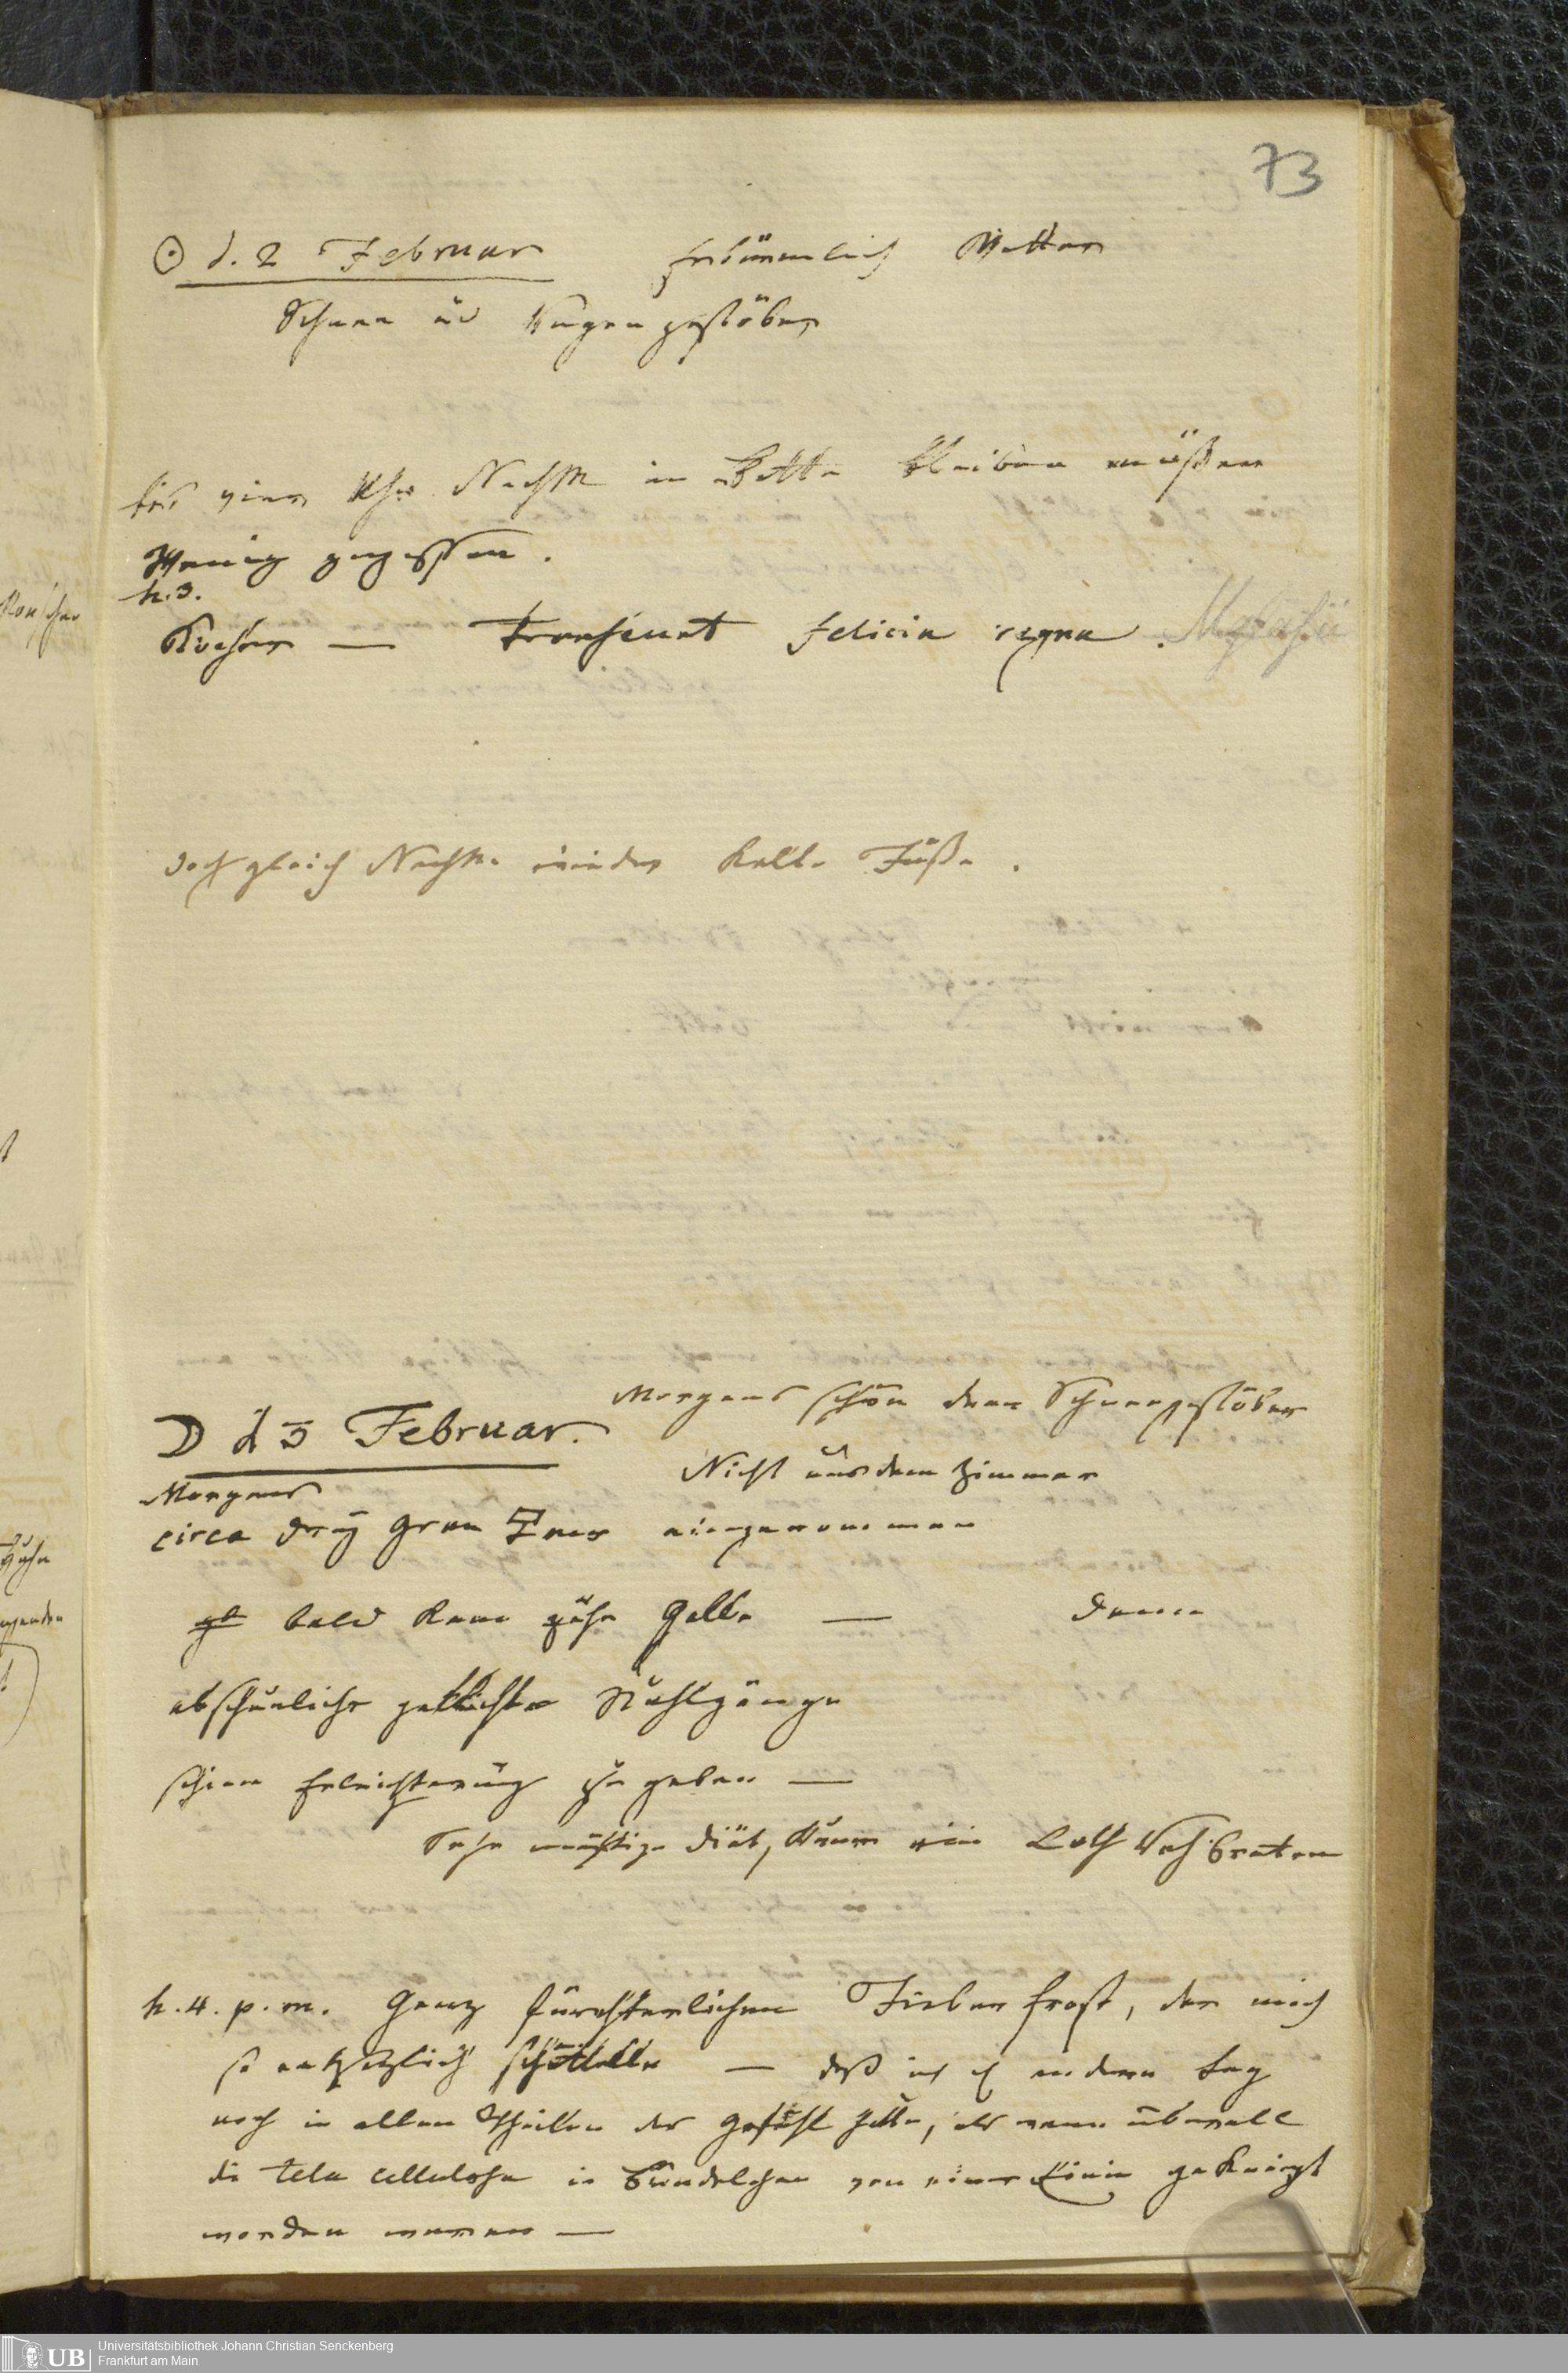 73
☉ d. 2 Februar erbärmlich Wetter
Schnee und Regengestöber
bis vier Uhr Nachm in Bette bleiben müßen
Wenig gegessen.
h. 3.
Kocher — Transeunt felicia regna.
doch gleich Nachm. wieder kalte Füße.
☽ d 3 Februar. Morgens schön dann Schneegestöber
Nicht aus dem Zimmer
Morgens
circa drey gran eingenommen
bald kam zähe Galle — dann
abscheuliche Stuhlgänge
schien Erleichterung zu geben —
Sehr mäßige Diät, kaum ein Loth Rehbraten
h. 4. p. m. Ganz fürchterlichen Fieberfrost, der mich
so entsetzlich schüttelte — daß ich andern Tag
noch in allen Theilen das Gefühl hatte, als wenn überall
die tela cellulosa in Bündelchen von einer gekneipt
worden waren —
Universitätsbibliothek Johann Christian Senckenberg
Frankfurt am Main
UB